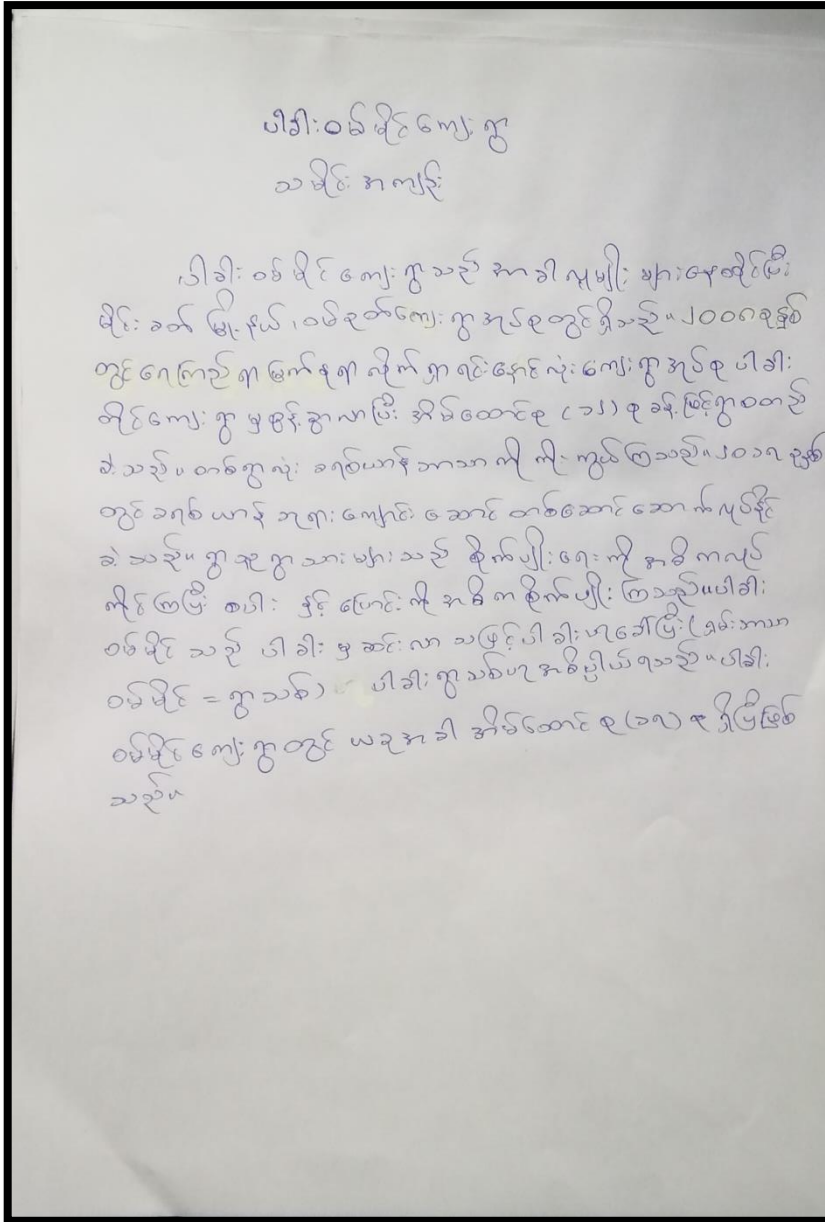 ပါခါးဝမ်မိုင်ကျေးရွာ
သမိုင်းအကျဉ်း
ပါခါးဝမ်မိုင်ကျေးရွာသည် အာခါလူမျိုး များနေထိုင်ပြီး
မိုင်းခတ်မြို့နယ်၊ ဝမ်ဇတ်ကျေးရွာအုပ်စုတွင်ရှိသည်။ ၂၀၀၈ ခုနှစ်
တွင်ရေကြည်ရာမြက်နုရာ လိုက်ရှာရင်းနောင်လုံးကျေးရွာအုပ်စု ပါခါး
တိုင်ကျေးရွာမှခွန့်ခွာလာပြီး အိမ်ထောင်စု (၁၂) စုခန့်ဖြင့်ရွာစတည်
ခဲ့သည်။ တစ်ရွာလုံး ခရစ်ယာန်ဘာသာကို ကိုးကွယ်ကြသည်။ ၂၀၁၅ ခုနှစ်
တွင်ခရစ်ယာန်ဘုရားကျောင်းဆောင်တစ်ဆောင်ဆောက်လုပ်နိုင်
ခဲ့သည်။ ရွာသူရွာသားများသည် စိုက်ပျိုးရေးကို အဓိကလုပ်
ကိုင်ကြပြီး စပါး နှင့်ပြောင်းကို အဓိကစိုက်ပျိုးကြသည်။ ပါခါး
ဝမ်မိုင်သည် ပါခါးမှဆင်းလာသဖြင့်ပါခါးဟုခေါ်ပြီး (ရှမ်းဘာသာ
ဝမ်မိုင် = ရွာသစ်) ပါခါးရွာသစ်ဟုအဓိပ္ပါယ်ရသည်။ ပါခါး
ဝမ်မိုင်ကျေးရွာတွင် ယခုအခါ အိမ်ထောင်စု (၁၅) စု ရှိပြီဖြစ်
သည်။